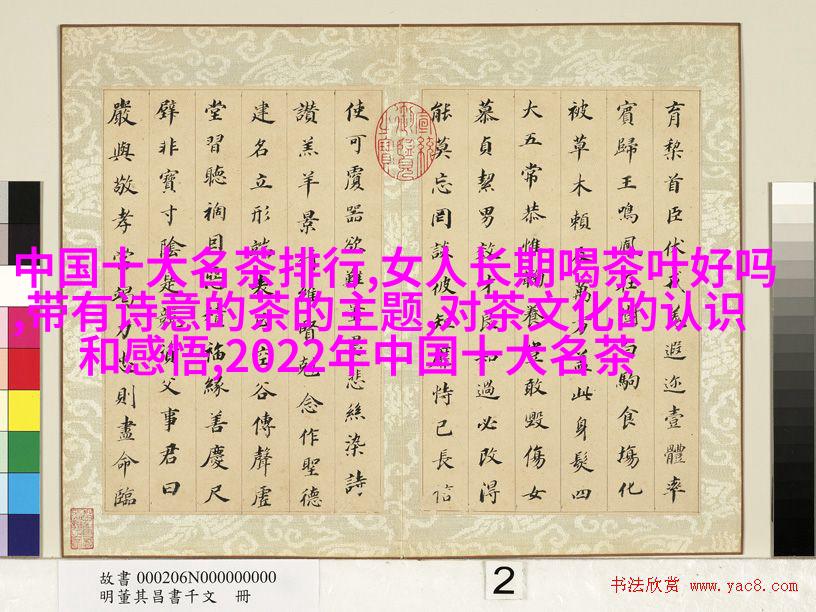 育棃首臣伏戎羌遐迩壹體率
賓歸王鳴鳳在樹白駒食場化
被草木賴及萬方蓋此身髮四
大五常恭惟鞠養豈敢毀傷女
慕貞絜男效才良知過必改得
能莫忘罔談彼短靡恃己長信
使可覆器欲難量墨悲絲染詩
讚羔羊景行維賢克念作聖德
建名立形端表正空谷傳聲虛
堂習聽禍因惡積福緣善慶尺
璧非寶寸陰是競資父事君曰
嚴與敬孝當竭力忠則盡命臨
宣統御覽之寶
中国十大名茶排行,女人长期喝茶叶好吗
,带有诗意的茶的主题,对茶文化的认识
和感悟,2022年中国十大名茶
故書 000206N000000000
明董其昌書千文 冊
2
书法欣赏 www.yac8.com